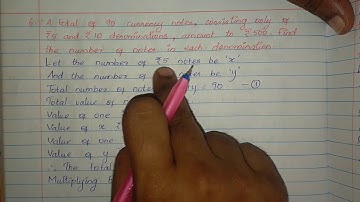 6. A total of 90 currency notes, consisting only of
₹5 and ₹10 denominations, amount to ₹500. Find
the number of notes in each denomination.
Let the number of ₹5 notes be 'x'
And the number of notes be 'y'
Total number of note y = 90 - ①
Total value of
Value of one
Value of x ₹
Value of one
Value of y
∴ The total
Multiplying